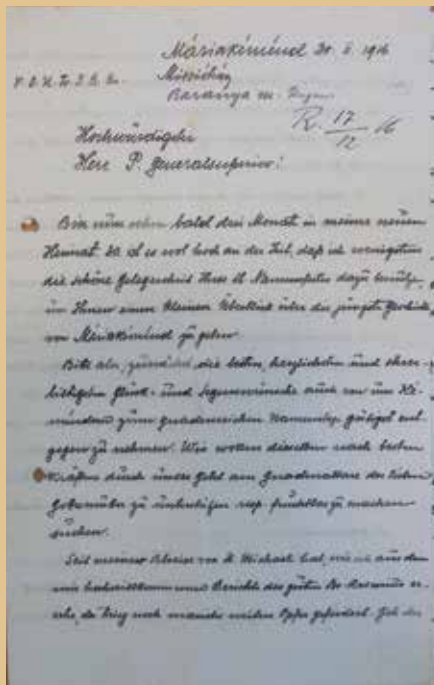 Máriakéménd 20. 1916
Missióház
Baranya m. Ungarn
R. 17/12 16
Hochwürdigster
Herr P. Generalsuperior!
Bin nun schon bald drei Monat in meiner neuen
Heimat. Da ist es wol hoch an der Zeit, daß ich wenigstens
die schöne Gelegenheit Ihres hl. Namensfestes dazu benütze,
um Ihnen einen kleinen Überblick über die jüngste Geschichte
von Máriakéménd zu geben.
Bitte aber, zunächst die besten, herzlichsten und
Glück- und Segenswünsche auch von uns Ké-
mendern zum gnadenreichen Namenstag gütigst ent-
gegen zu nehmen. Wir wollen dieselben nach besten
Kräften durch unser Gebet am Gnadenaltare der lieben
Gottesmutter zu unterstützen resp. fruchtbar zu machen
suchen.
Seit meiner Abreise von St. Michael hat, wie ich aus dem
mir Berichte des guten Br. er-
sehe, der Krieg noch manche weitere Opfer gefordert.